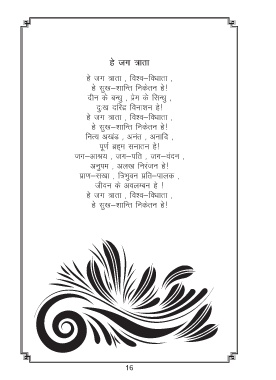 हे जग त्राता
हे जग त्राता , विश्व–विधाता ,
हे सुख–शान्ति निकेतन हे!
दीन के बन्धु , प्रेम के सिन्धु ,
दुःख दरिद्र विनाशन हे!
हे जग त्राता , विश्व–विधाता ,
हे सुख–शान्ति निकेतन हे!
नित्य अखंड , अनंत , अनादि ,
पूर्ण ब्रह्म सनातन हे!
जग–आश्रय , जग–पति , जग–वंदन ,
अनुपम , अलख निरंजन हे!
प्राण–सखा , त्रिभुवन प्रति–पालक ,
जीवन के अवलम्बन हे !
हे जग त्राता , विश्व–विधाता ,
हे सुख–शान्ति निकेतन हे!
16